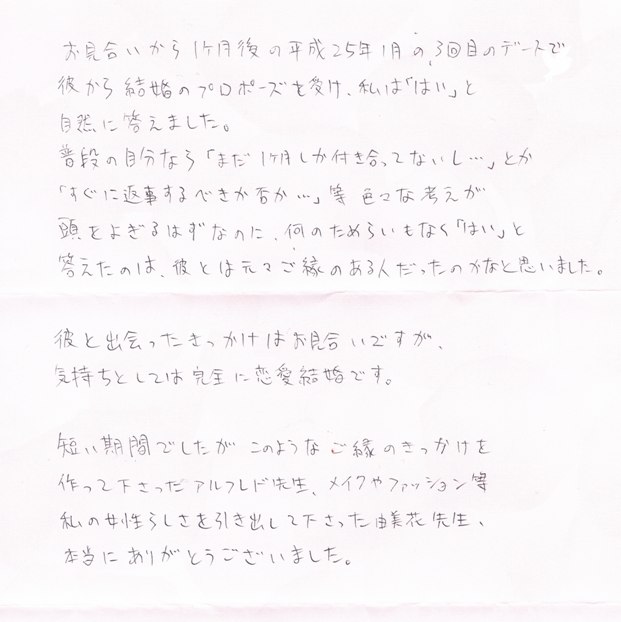 お見合いから1ヶ月後の平成25年1月の、3回目のデートで
彼から結婚のプロポーズを受け、私は「はい」と
自然に答えました。
普段の自分なら「まだ1ヶ月しか付き合ってないし…」とか
「すぐに返事するべきか否か…」等 色々な考えが
頭をよぎるはずなのに、何のためらいもなく「はい」と
答えたのは、彼とは元々ご縁のある人だったのかなと思いました。
彼と出会ったきっかけはお見合いですが、
気持ちとしては完全に恋愛結婚です。
短い期間でしたが このようなご縁のきっかけを
作って下さったアルフレド先生、メイクやファッション等
私の女性らしさを引き出して下さった由美花先生、
本当にありがとうございました。